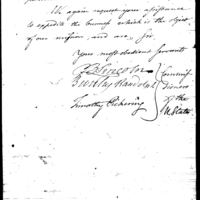 We again request your assistance
to expedite the business which is the object
of our mission, and are, Sir
Your most obedient Servants
B Lincoln
Beverley Randolph
Timothy Pickering
Commis-
sioners
of the
U. States